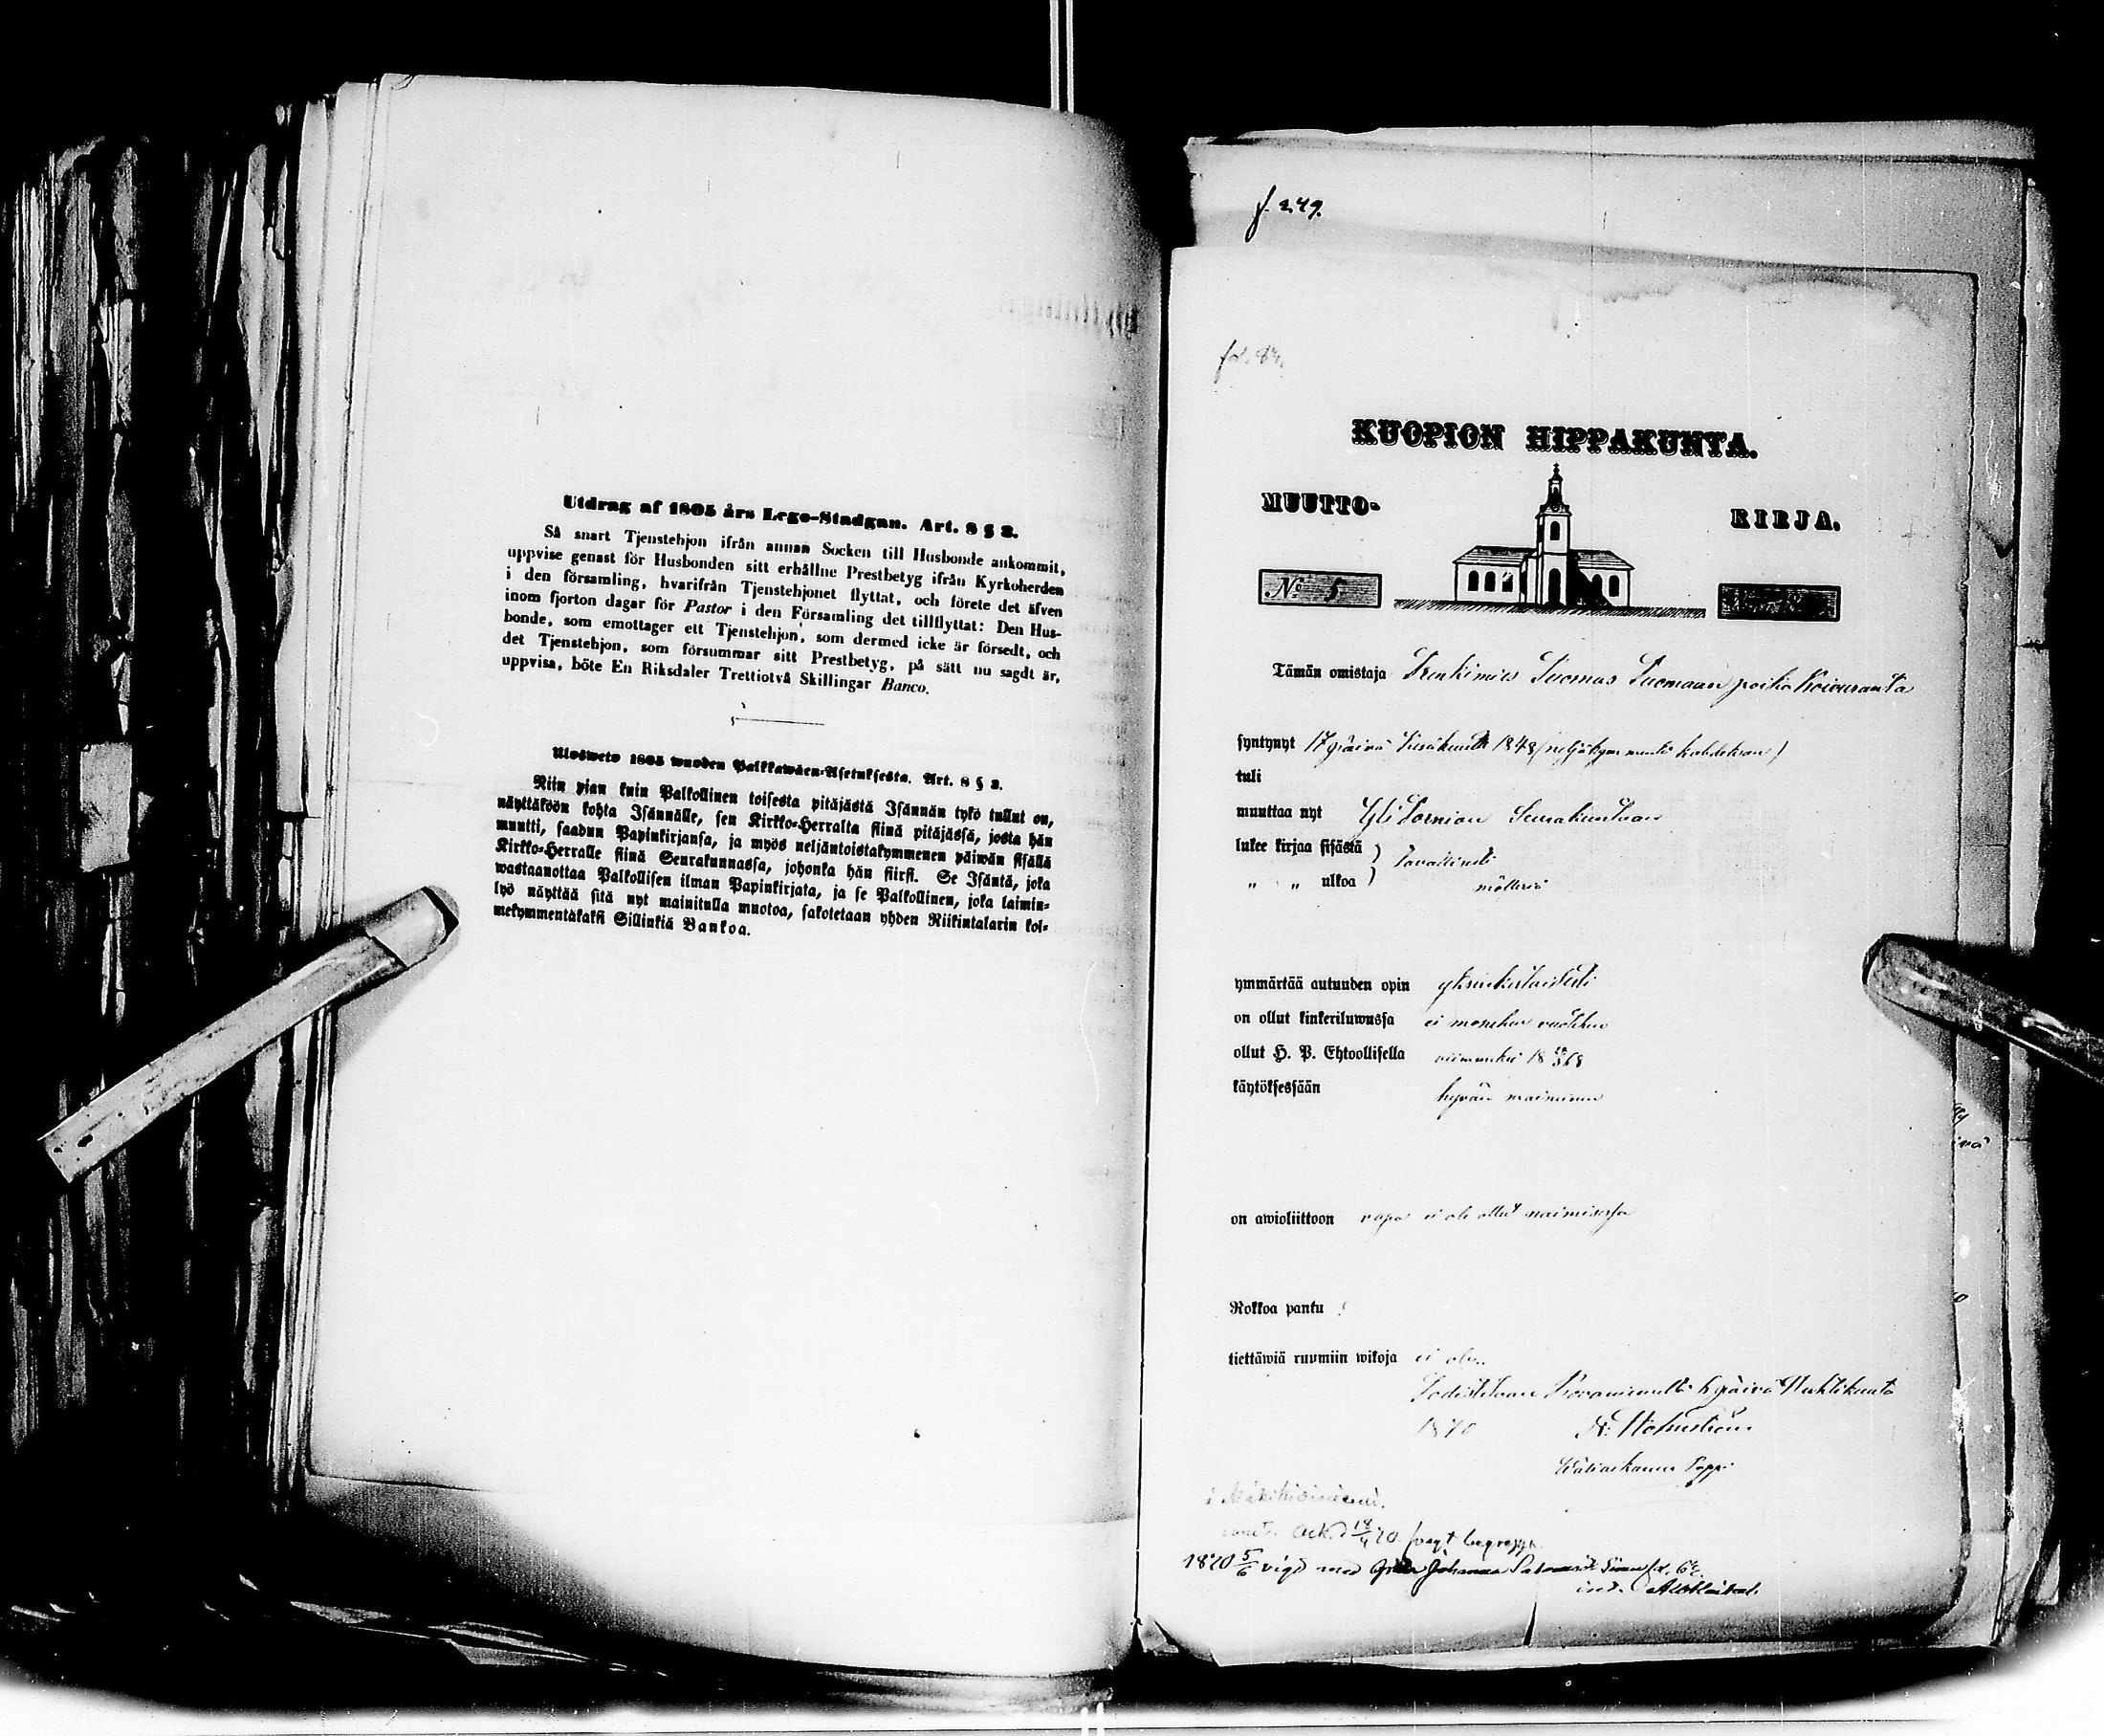 Utdrag af 1805 års Lego-Stadgan. Art. 8 § 2.
Så snart Tjenstehjon ifrån annan Socken till Husbonde ankommit,
uppvise genast för Husbonden sitt erhållne Prestbetyg ifrån Kyrkoherden
i den församling, hvarifrån Tjenstehjonet flyttat, och förete det äfven
inom fjorton dagar för Pastor i den Församling det tillflyttat: Den Hus-
bonde, som emottager ett Tjenstehjon, som dermed icke är försedt, och
det Tjenstehjon, som försummar sitt Prestbetyg, på sätt nu sagdt är,
uppvisa, böte En Riksdaler Trettiotvå Skillingar Banco.
Ulosweto 1805 wuoden Palkkawäen-Asetuksesta. Art. 8 § 2.
Niin pian kuin Palkollinen toisesta pitäjästä Isännän tykö tullut on,
näyttäköön kohta Isännälle, sen Kirkko-Herralta siinä pitäjässä, josta hän
muutti, saadun Papinkirjansa, ja myös neljäntoistakymmenen päiwän sisällä
Kirkko-Herralle siinä Seurakunnassa, johonka hän siirsi. Se Isäntä, joka
wastaanottaa Palkollisen ilman Papinkirjata, ja se Palkollinen, joka laimin-
lyö näyttää sitä nyt mainitulla muotoa, sakotetaan yhden Riikintalarin kol-
mekymmentäkaksi Sillinkiä Bankoa.
f. 249.
KUOPION HIPPAKUNTA.
MUUTTO- KIRJA.
No 5
Tämän omistaja Renkimies Tuomas Tuomaan poika Koivuranta
syntynyt 17 päivä Kesäkuuta 1848 (neljäkymmentä kahdeksan)
tuli
muuttaa nyt Yli Tornion Seurakuntaan
lukee kirjaa sisästä } tavallisesti
" " ulkoa }
ymmärtää autuuden opin yksinkertaisesti
on ollut kinkeriluwussa ei monehen vuotehen
ollut H. P. Ehtoollisella viimmeksi 18 68
käytöksessään hyvän maininnen
on awioliittoon vapa ei ole ollut naimisessa
Rokkoa pantu
tiettäwiä ruumiin wikoja ei ole.
Todistetaan Rovaniemellä päivä Huhtikuuta
1870 A: Holmström
Väliaikanen Pappi
18/4 70
1870 5/6 vigd med Johanna